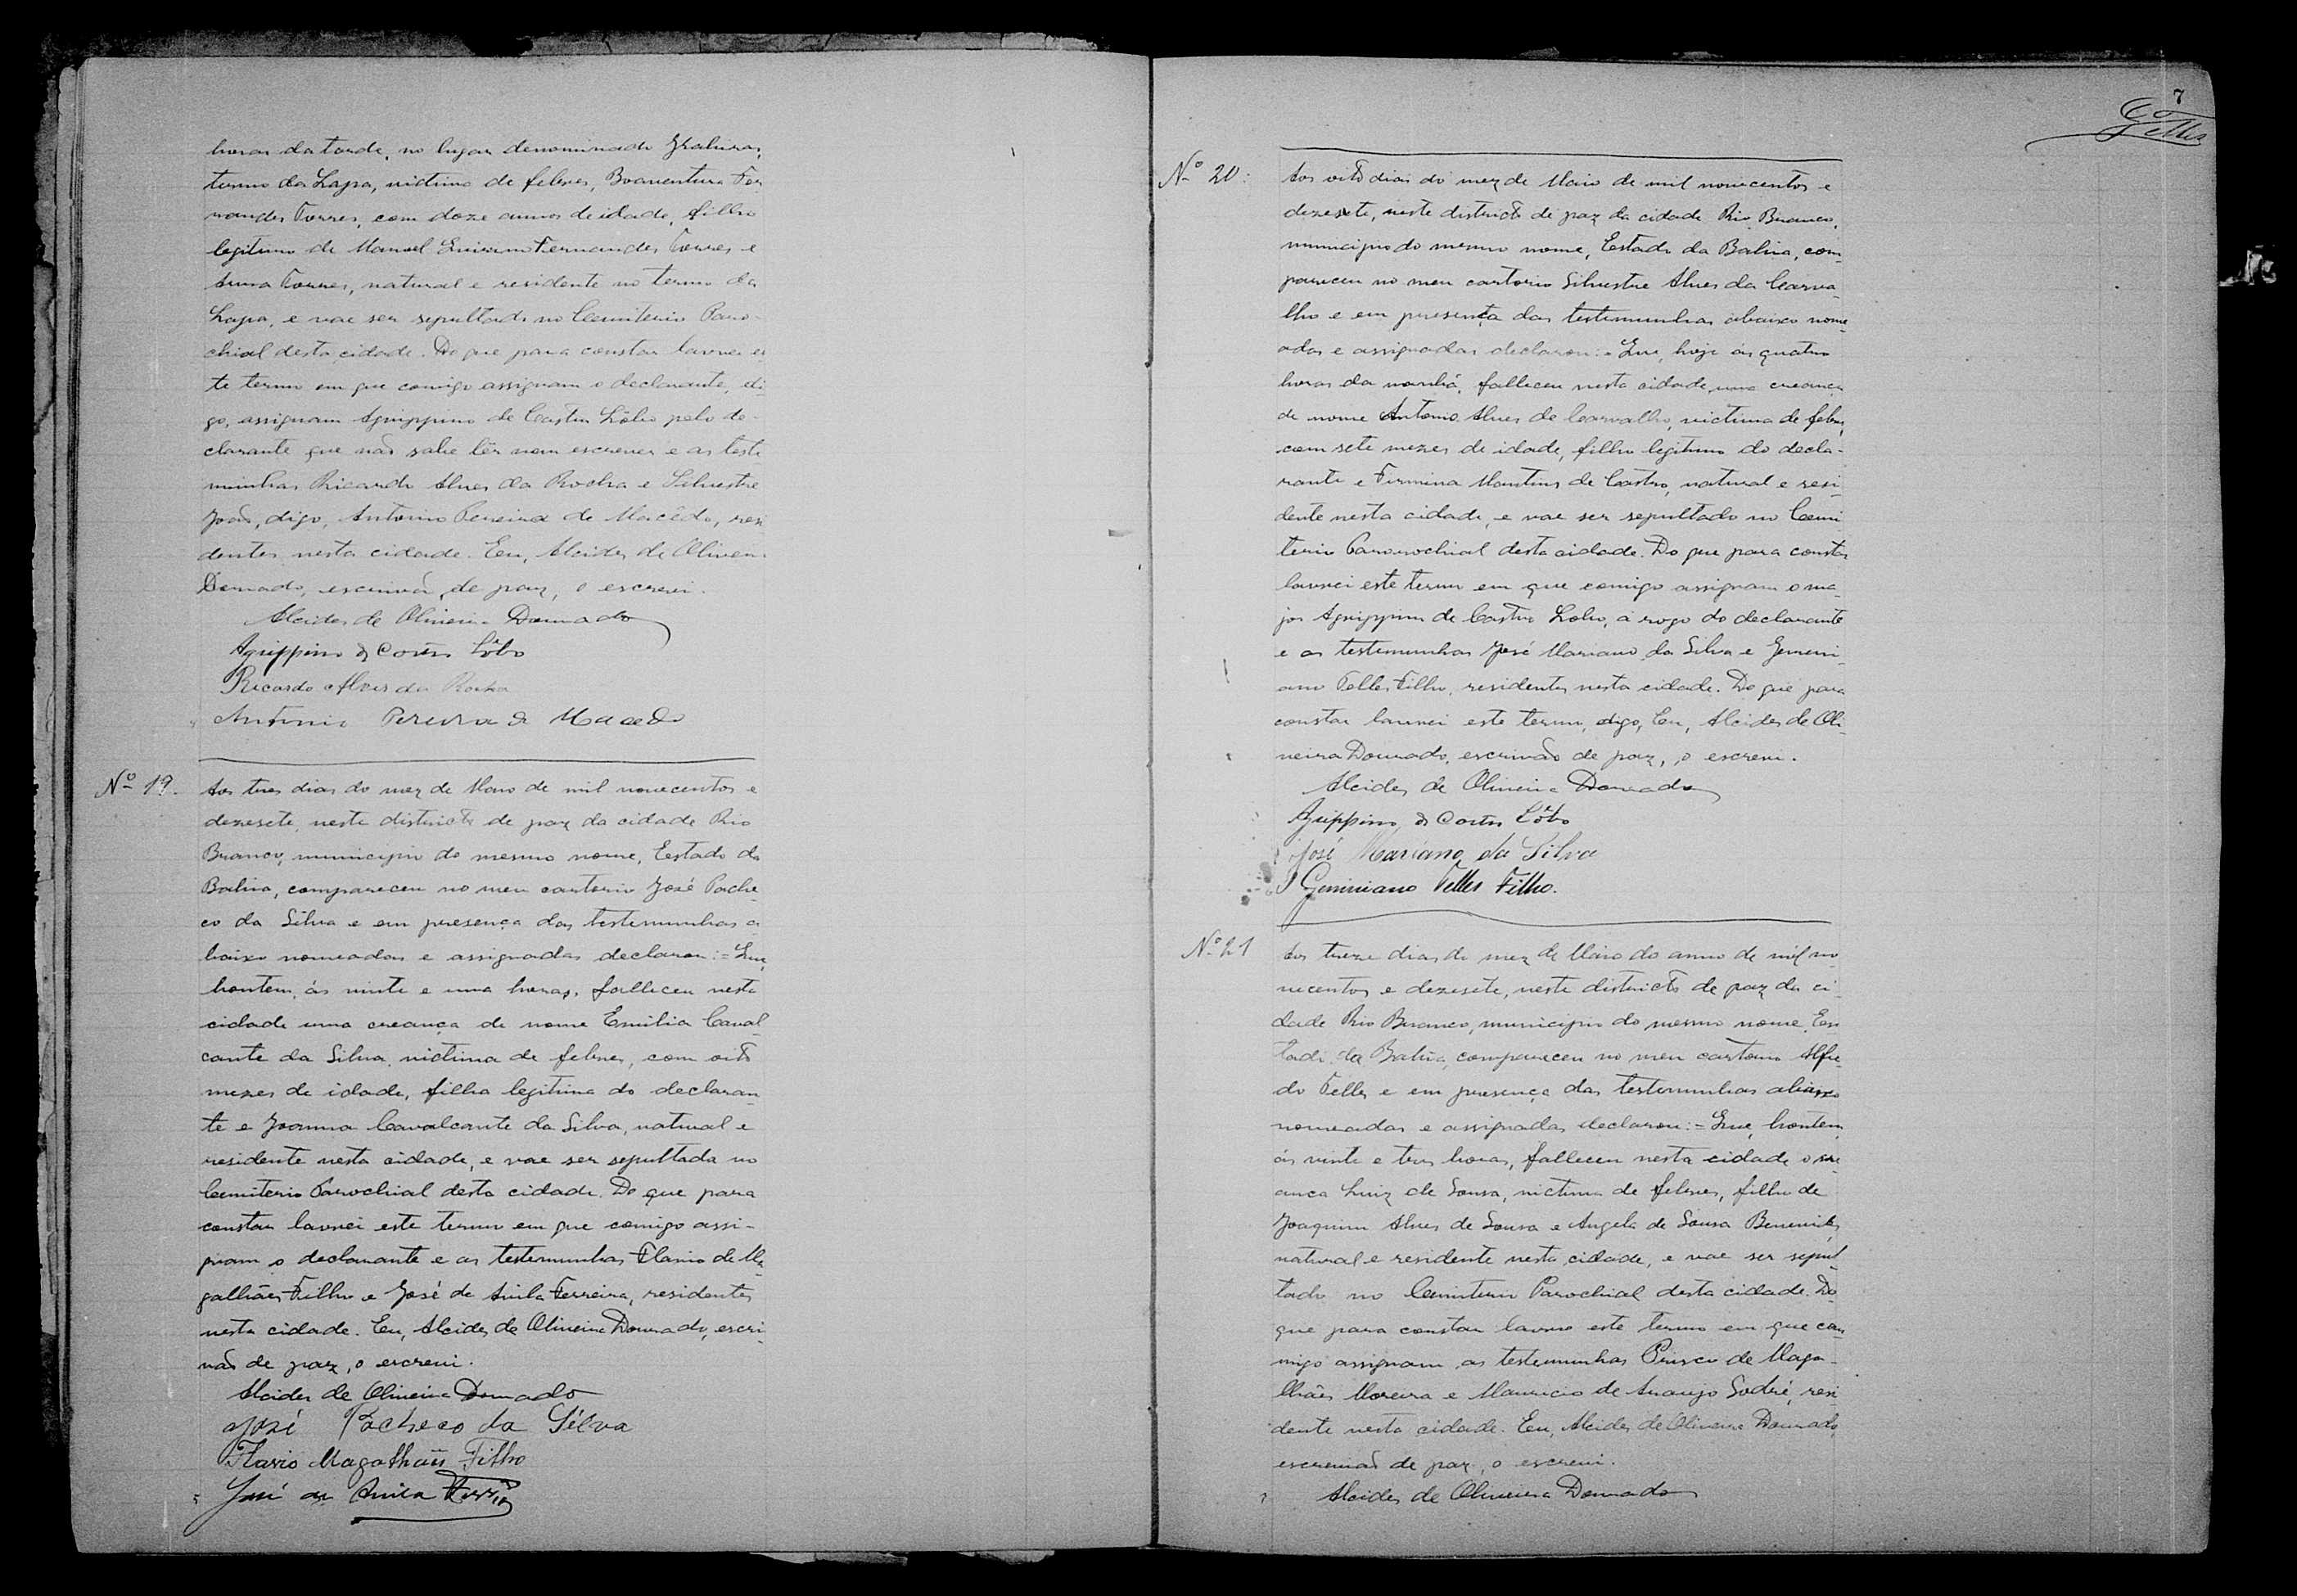 horas da tarde, no lugar denominado
termo da Lapa, victima de febres, Boaventura Fer
nandes Torres, com doze annos de idade, filho
legitimo de Manoel Fernandes Torres e
Anna Torres, natural e residente no termo da
Lapa, e vae ser sepultado no Cemiterio Paro-
chial desta cidade. Do que para constar lavrei es
te termo em que comigo assignam o declarante, di
go, assignam Agrippino de Castro Lôbo pelo de-
clarante que não sabe lêr nem escrever e as teste
munhas Ricardo Alves da Rocha e Silvestre
João, digo, Antonio Pereira de Macêdo, resi
dentes nesta cidade. Eu, Alcides de Oliveira
Dourado, escrivão de paz, o escrevi.
Alcides de Oliveira Dourado
Agrippino de Castro Lôbo
Ricardo Alves da Rocha
Antonio Pereira de Macedo
Nº 19.
Aos tres dias do mez de Maio de mil novecentos e
dezesete, neste districto de paz da cidade Rio
Branco, municipio do mesmo nome, Estado da
Bahia, compareceu no meu cartorio José Pache
co da Silva e em presença das testemunhas a
baixo nomeadas e assignadas declarou:= Que,
hontem, ás vinte e uma horas, falleceu nesta
cidade uma creança de nome Emilia Caval
cante da Silva, victima de febres, com oito
mezes de idade, filha legitima do declaran
te e Joanna Cavalcante da Silva, natural e
residente nesta cidade, e vae ser sepultada no
Cemiterio Parochial desta cidade. Do que para
constar lavrei este termo em que comigo assi-
gnam o declarante e as testemunhas Flavio de Ma
galhães Filho e José de Avila Ferreira, residentes
nesta cidade. Eu, Alcides de Oliveira Dourado, escri-
vão de paz, o escrevi.
Alcides de Oliveira Dourado
José Pacheco da Silva
Flavio Magalhães Filho
José de Avila Ferrª
7
GTelles
Nº 20:
Aos oito dias do mez de Maio de mil novecentos e
dezesete, neste districto de paz da cidade Rio Branco,
municipio do mesmo nome, Estado da Bahia, com-
pareceu no meu cartorio Silvestre Alves da Carva-
lho e em presença das testemunhas abaixo nome-
adas e assignadas declarou:= Que, hoje ás quatro
horas da manhã, falleceu nesta cidade, uma creança
de nome Antonio Alves de Carvalho, victima de febres,
com sete mezes de idade, filho legitimo do decla-
rante e Firmina Martins de Castro, natural e resi-
dente nesta cidade, e vae ser sepultado no Cemi-
terio Parrochial desta cidade. Do que para constar
lavrei este termo em que comigo assignam o ma-
jor Agrippino de Castro Lobo, a rogo do declarante
e as testemunhas José Mariano da Silva e Gemini-
ano Telles Filho, residentes nesta cidade. Do que para
constar lavrei este termo, digo, Eu, Alcides de Oli-
veira Dourado, escrivão de paz, o escrevi.
Alcides de Oliveira Dourado
Agrippino de Castro Lôbo
José Mariano da Silva
Geminiano Telles Filho.
Nº 21
Aos treze dias do mez de Maio do anno de mil no
vecentos e dezesete, neste districto de paz da ci-
dade Rio Branco, municipio do mesmo nome, Es-
tado da Bahia, compareceu no meu cartorio Alfre-
do Telles e em presença das testemunhas abaixo
nomeadas e assignadas declarou:= Que, hontem,
ás vinte e tres horas, falleceu nesta cidade o cre-
ança Luiz de Sousa, victima de febres, filho de
Joaquim Alves de Sousa e Angela de Sousa
natural e residente nesta cidade, e vae ser sepul-
tado no Cemiterio Parochial desta cidade. Do
que para constar lavro este termo em que com-
migo assignam as testemunhas Prisco de Maga-
lhães Moreira e Mauricio de Araujo Sodré, resi-
dente nesta cidade. Eu, Alcides de Oliveira Dourado,
escrevão de paz, o escrevi.
Alcides de Oliveira Dourado